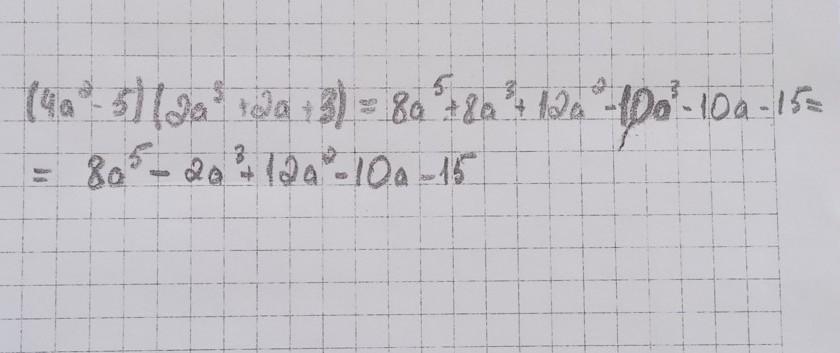 (4a² - 5)(2a³ + 2a + 3) = 8a⁵ + 8a³ + 12a² - 10a³ - 10a - 15 =
= 8a⁵ - 2a³ + 12a² - 10a - 15